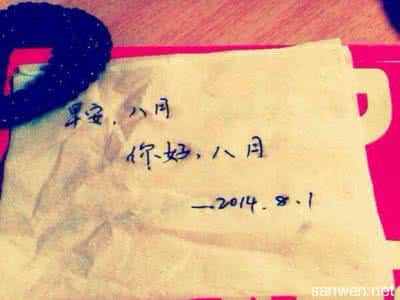 早安，八月
你好，八月
—2014.8.1
sanwen.net